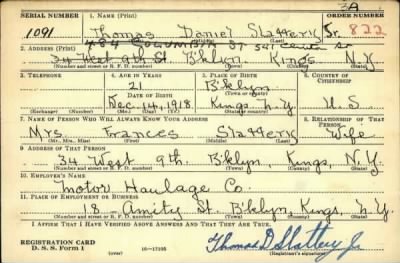 3A
SERIAL NUMBER 1. NAME (Print) ORDER NUMBER
1091 Thomas Daniel Slattery Jr. 822
(First) (Middle) (Last)
2. ADDRESS (Print) 484 COLUMBIA ST 541
34 West 9th St B'klyn Kings N.Y.
(Number and street or R. F. D. number) (Town) (County) (State)
3. TELEPHONE 4. AGE IN YEARS 5. PLACE OF BIRTH 6. COUNTRY OF CITIZENSHIP
21 B'klyn
DATE OF BIRTH (Town or county)
Dec. 14, 1918 Kings N.Y. U.S.
(Exchange) (Number) (Mo.) (Day) (Yr.) (State or country)
7. NAME OF PERSON WHO WILL ALWAYS KNOW YOUR ADDRESS 8. RELATIONSHIP OF THAT PERSON
Mrs. Frances Slattery Wife
(Mr., Mrs., Miss) (First) (Middle) (Last)
9. ADDRESS OF THAT PERSON
34 West 9th. B'klyn, Kings, N.Y.
(Number and street or R. F. D. number) (Town) (County) (State)
10. EMPLOYER'S NAME
Motor Haulage Co.
11. PLACE OF EMPLOYMENT OR BUSINESS
18 - Amity St. B'klyn, Kings, N.Y.
(Number and street or R. F. D. number) (Town) (County) (State)
I AFFIRM THAT I HAVE VERIFIED ABOVE ANSWERS AND THAT THEY ARE TRUE.
REGISTRATION CARD
D. S. S. Form 1 (over) 16—17105 Thomas D Slattery Jr
(Registrant's signature)